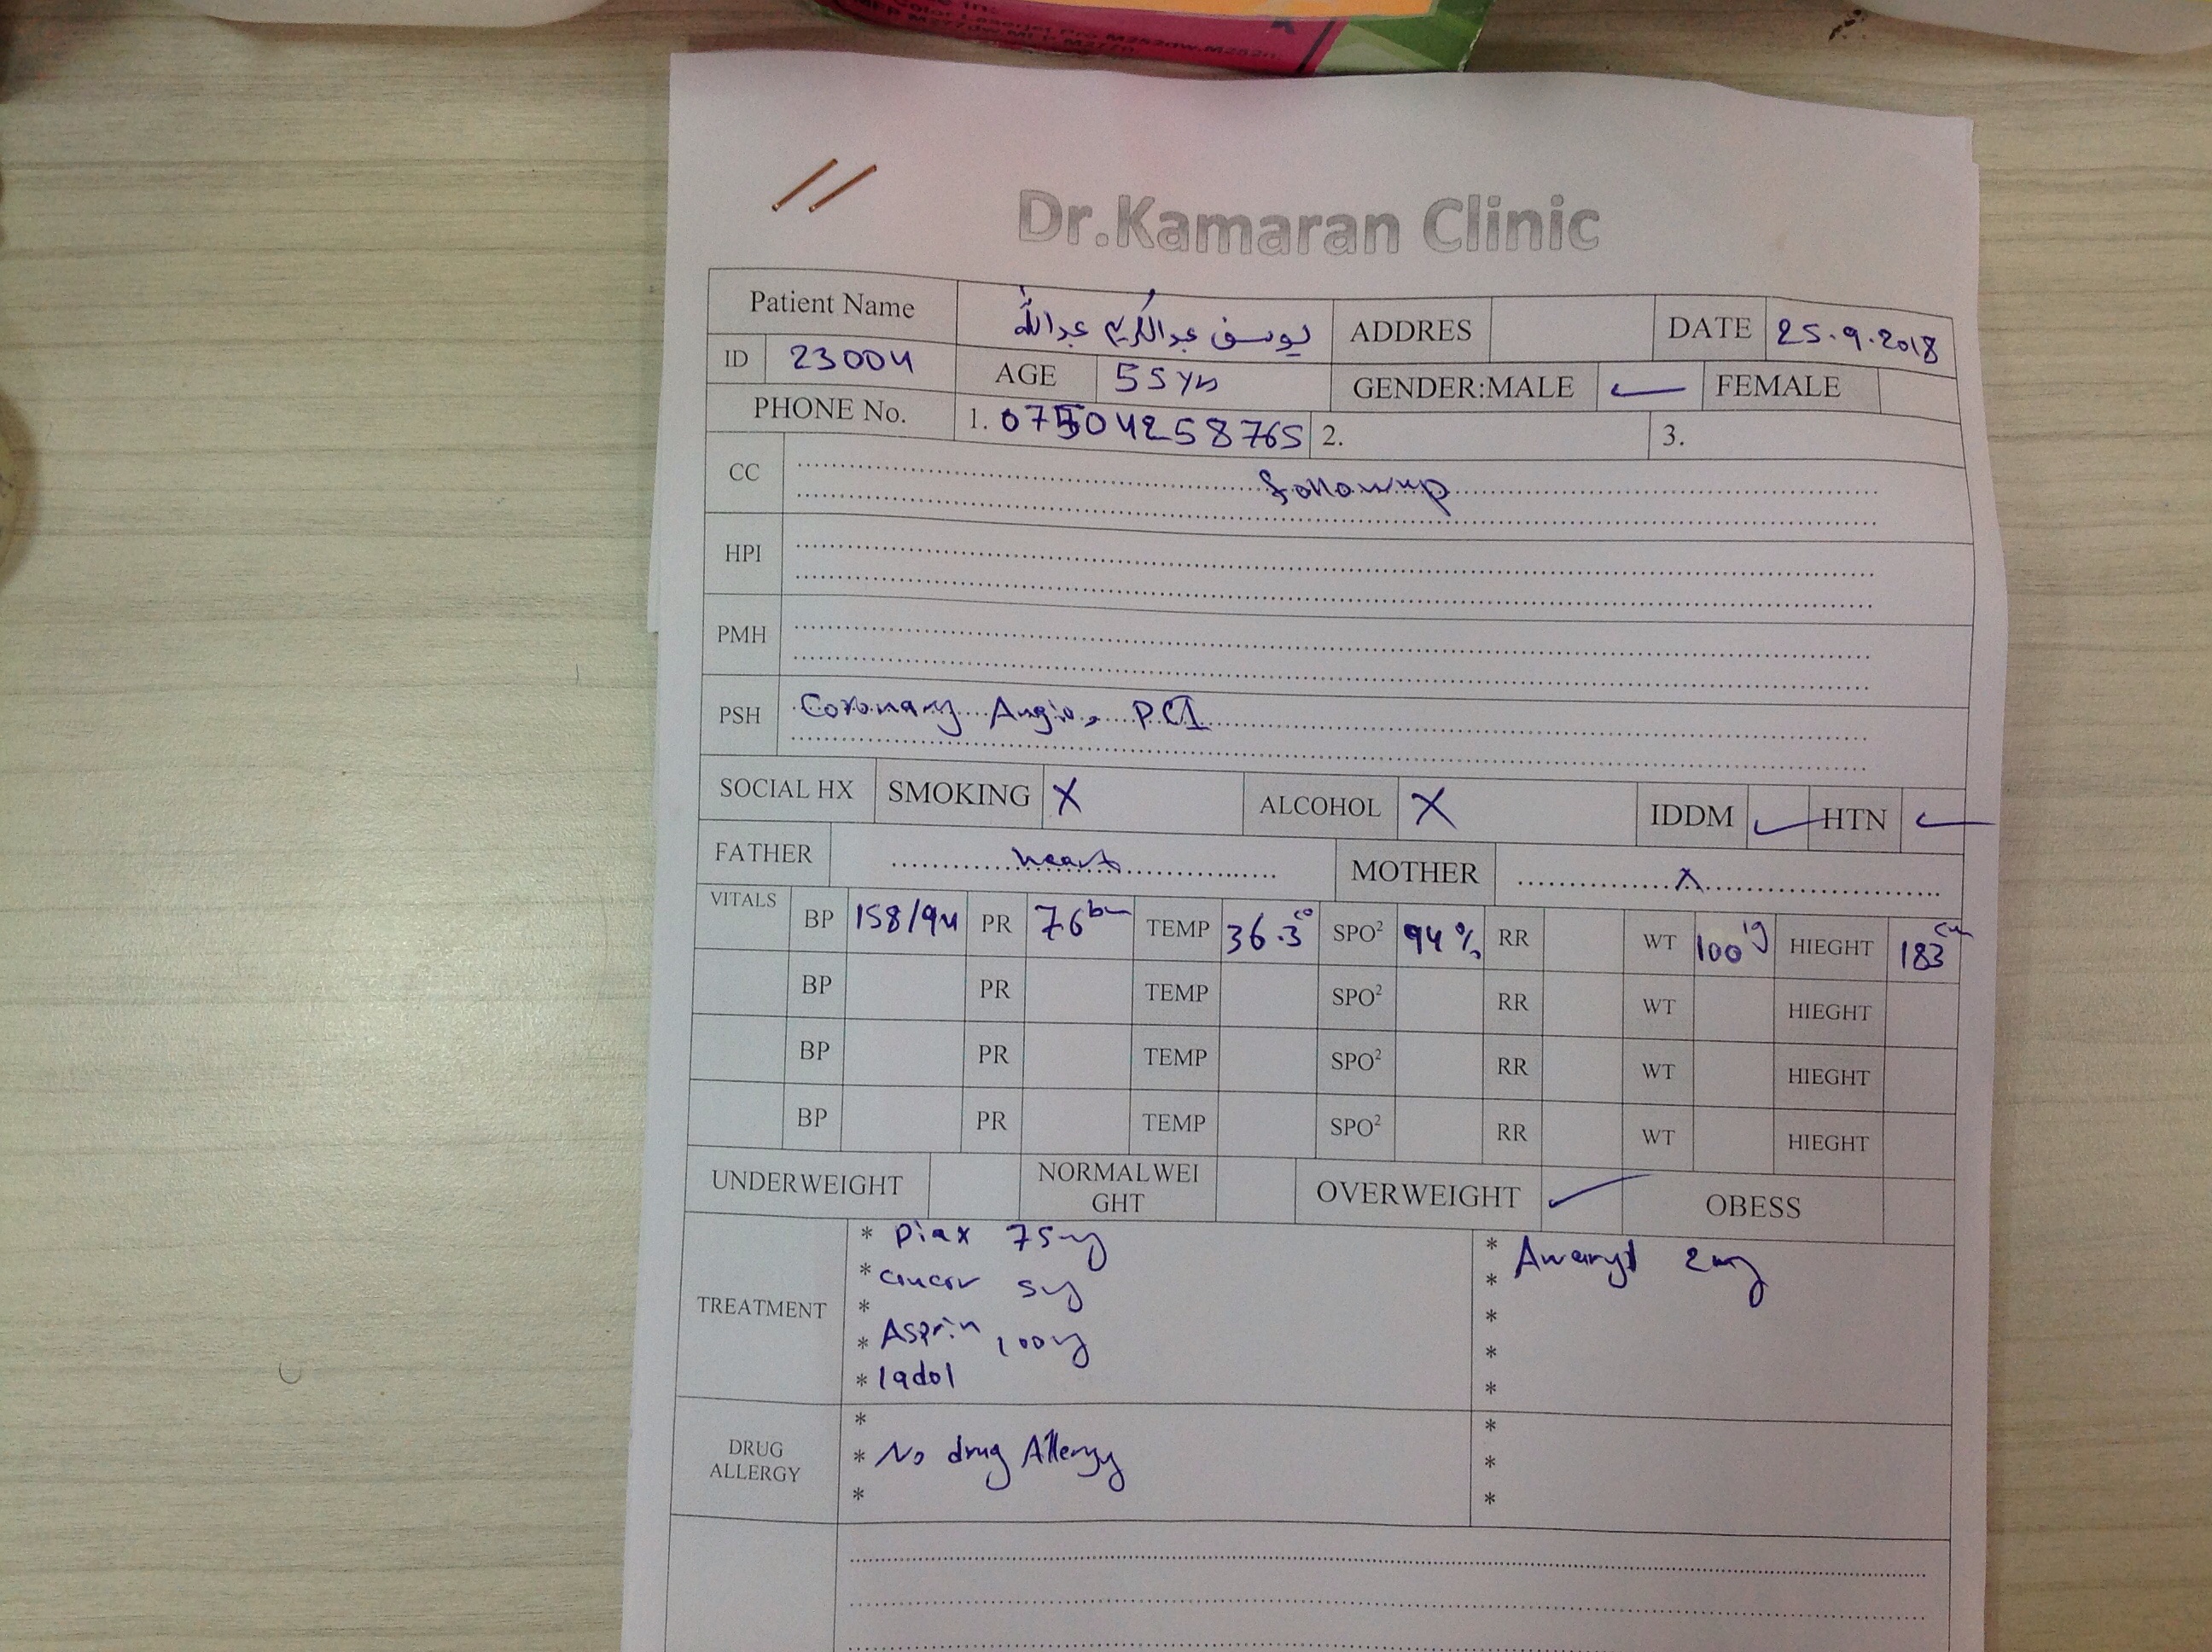 Color LaserJet Pro M252dw,M252n
MFP M277dw,MFP M277n
Dr.Kamaran Clinic
Patient Name يوسف عبدالكريم عبدالله ADDRES DATE 25.9.2018
ID 23004 AGE 55 yrs GENDER:MALE ✓ FEMALE
PHONE No. 1. 07504258765 2. 3.
CC followup
HPI
PMH
PSH Coronary Angio, PCI
SOCIAL HX SMOKING X ALCOHOL X IDDM ✓ HTN ✓
FATHER heart MOTHER X
VITALS BP 158/94 PR 76 TEMP 36.3 SPO² 94% RR WT 100 HIEGHT 183 cm
BP PR TEMP SPO² RR WT HIEGHT
BP PR TEMP SPO² RR WT HIEGHT
BP PR TEMP SPO² RR WT HIEGHT
UNDERWEIGHT NORMALWEI
GHT OVERWEIGHT ✓ OBESS
TREATMENT
* Piax 75mg
* concor 5mg
*
* Asprin 100mg
* ladol
* Amaryl 2mg
*
*
*
*
DRUG
ALLERGY
*
* No drug Allergy
*
*
*
*